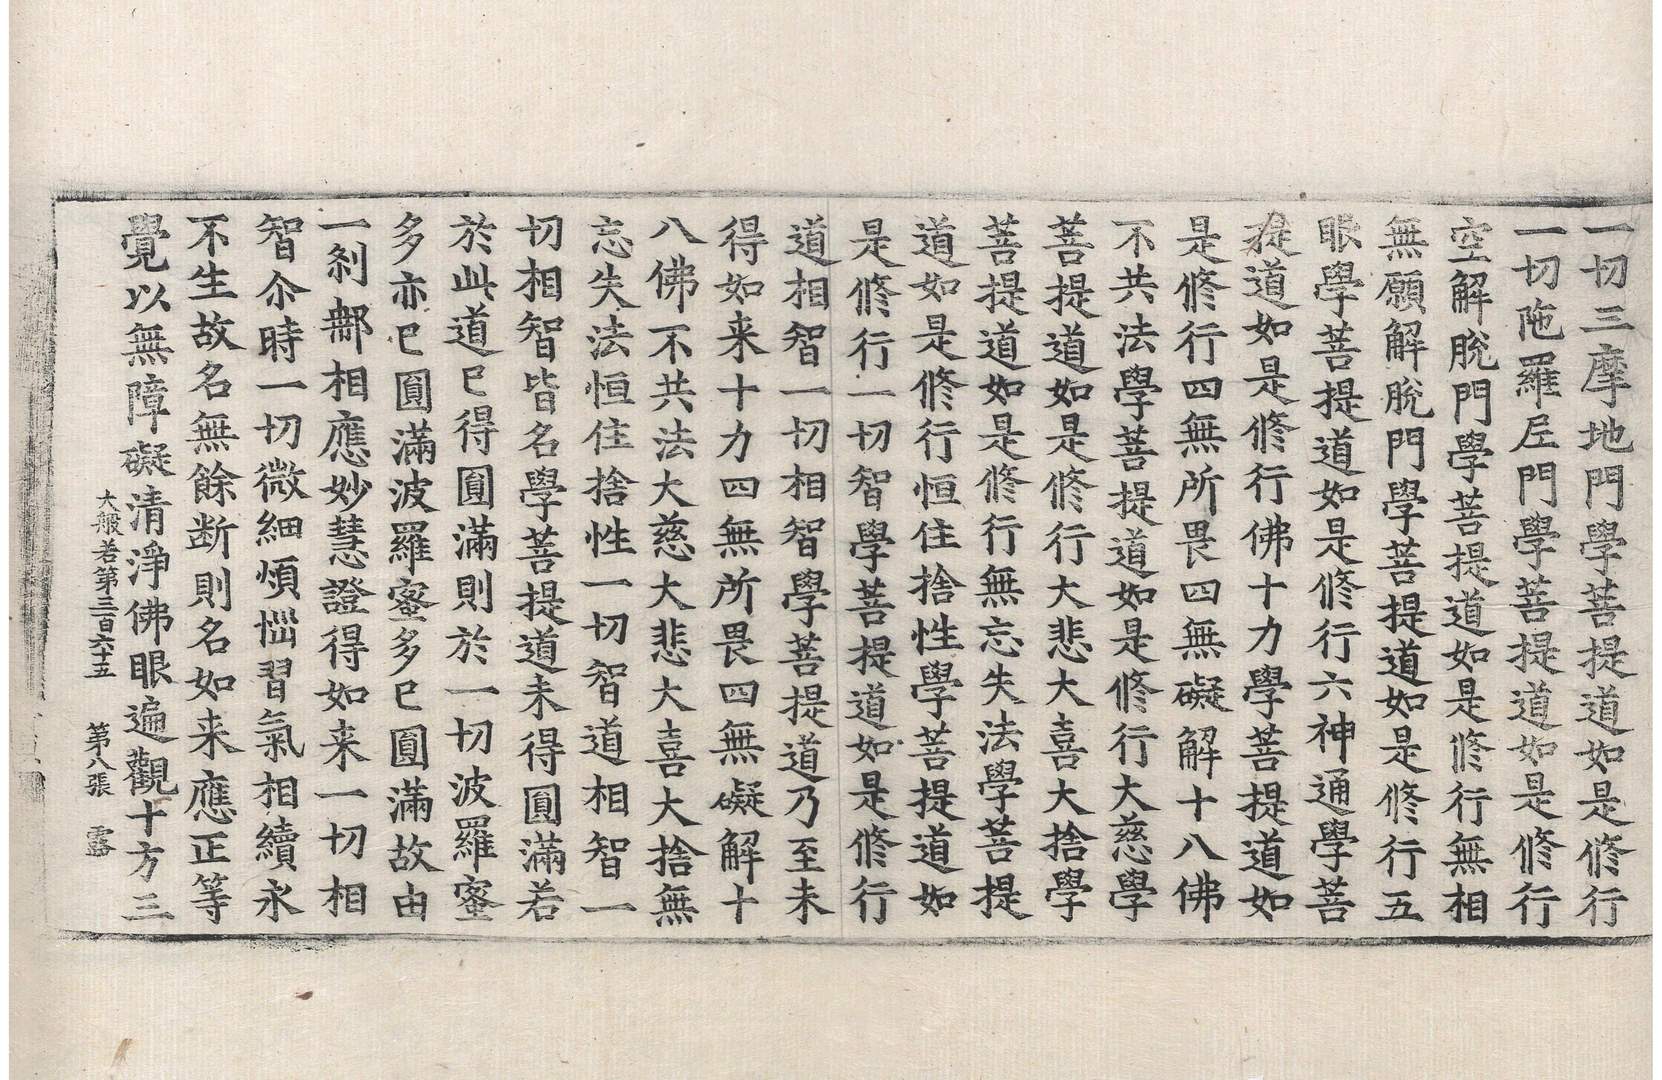 一切三摩地門學菩提道如是修行
一切陁羅尼門學菩提道如是修行
空解脫門學菩提道如是修行無相
無願解脫門學菩提道如是修行五
眼學菩提道如是修行六神通學菩
提道如是修行佛十力學菩提道如
是修行四無所畏四無礙解十八佛
不共法學菩提道如是修行大慈學
菩提道如是修行大悲大喜大捨學
菩提道如是修行無忘失法學菩提
道如是修行恒住捨性學菩提道如
是修行一切智學菩提道如是修行
道相智一切相智學菩提道乃至未
得如来十力四無所畏四無礙解十
八佛不共法大慈大悲大喜大捨無
忘失法恒住捨性一切智道相智一
切相智皆名學菩提道未得圓滿若
於此道已得圓滿則於一切波羅蜜
多亦已圓滿波羅蜜多已圓滿故由
一剎那相應妙慧證得如来一切相
智尒時一切微細煩惱習氣相續永
不生故名無餘断則名如来應正等
覺以無障礙清淨佛眼遍觀十方三
大般若第三百六十五 第八張 露